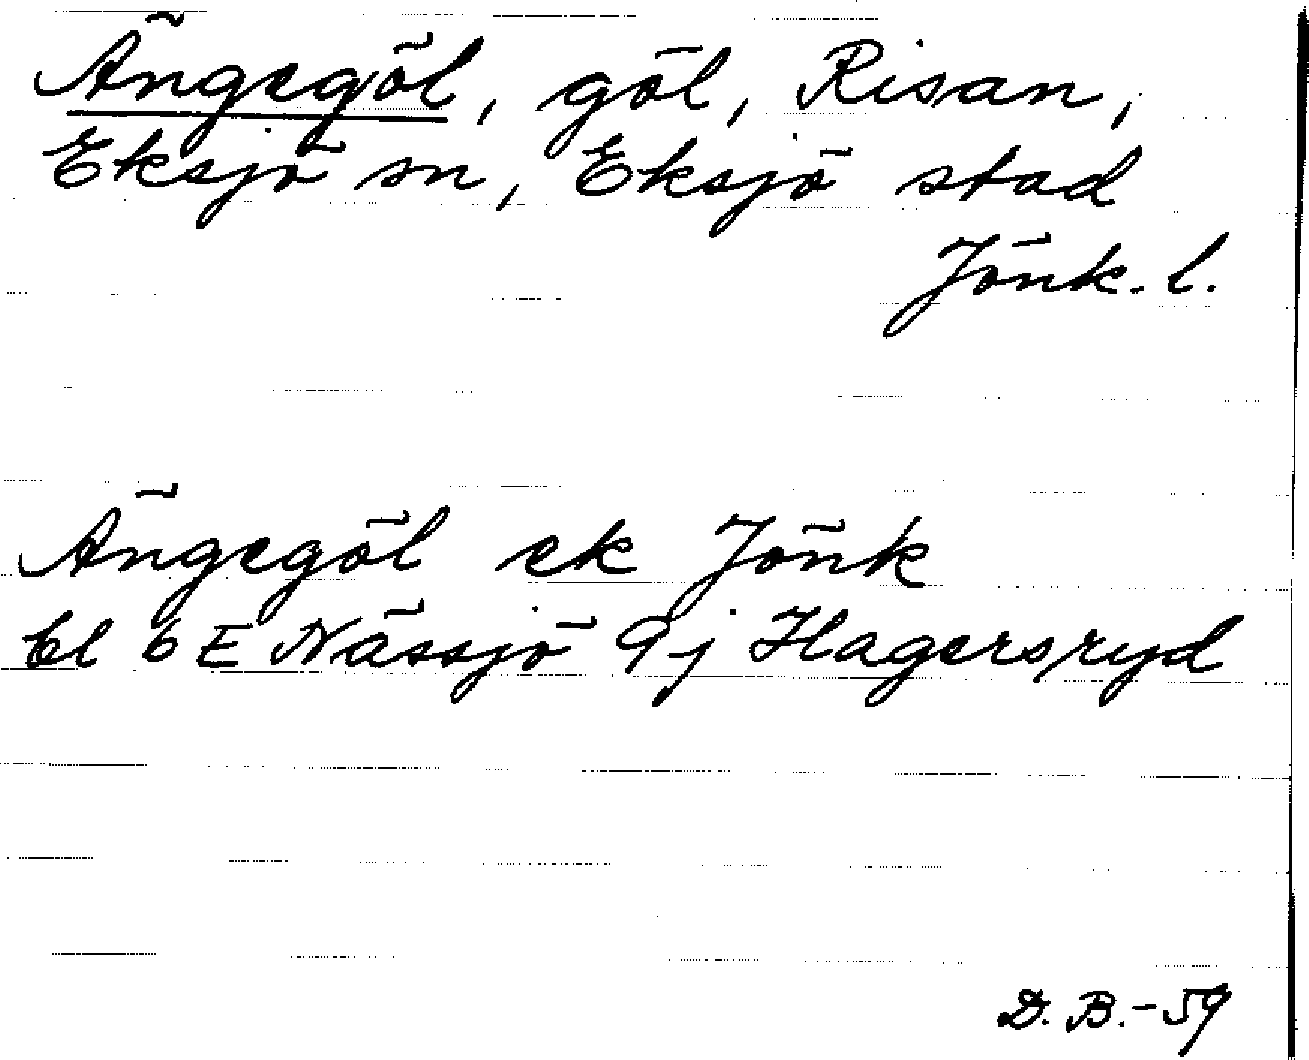 Ängegöl, göl, Risan,
Eksjö sn, Eksjö stad
Jönk. l.
Ängegöl ek Jönk
bl 6 E Nässjö 9j Hagersryd
D. B. - 59